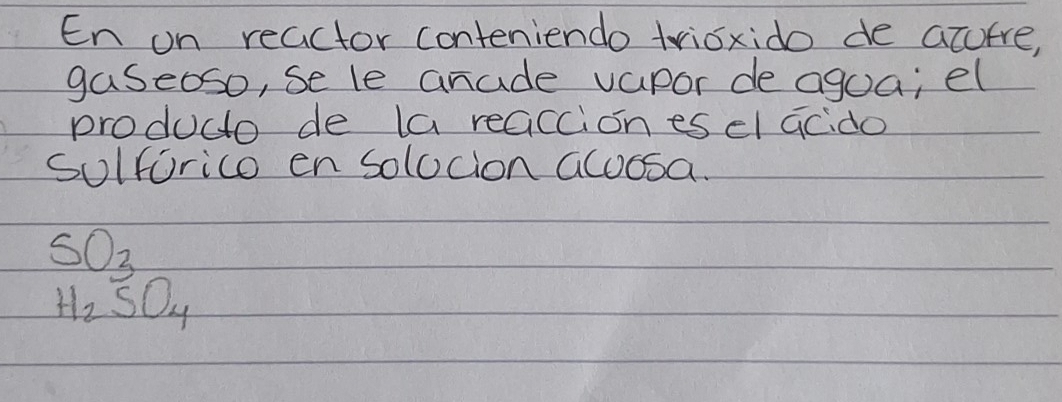 En un reactor conteniendo trióxido de azufre,
gaseoso, se le añade vapor de agua; el
producto de la reacción es el ácido
sulfúrico en solocion acuosa.
SO3
H2SO4